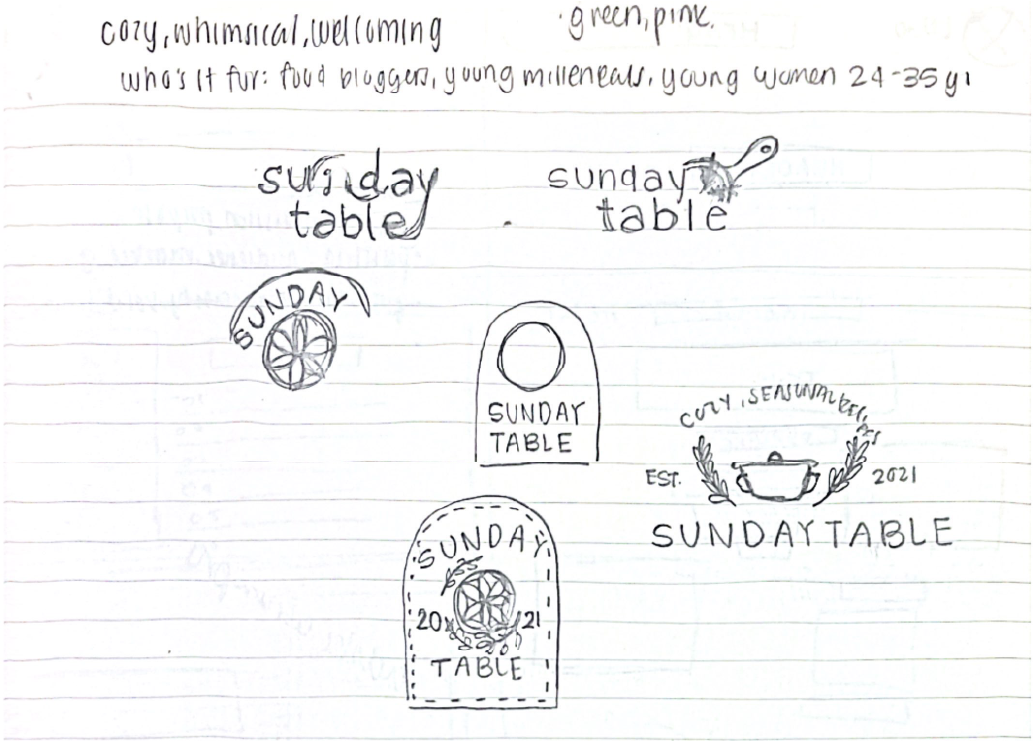 cozy, whimsical, welcoming
·green, pink.
who's it for: food bloggers, young milleneals, young women 24-35 yr
sunday
table
sunday
table
SUNDAY
SUNDAY
TABLE
COZY, SEASONAL RECIPES
EST. 2021
SUNDAY TABLE
SUNDAY
20 21
TABLE